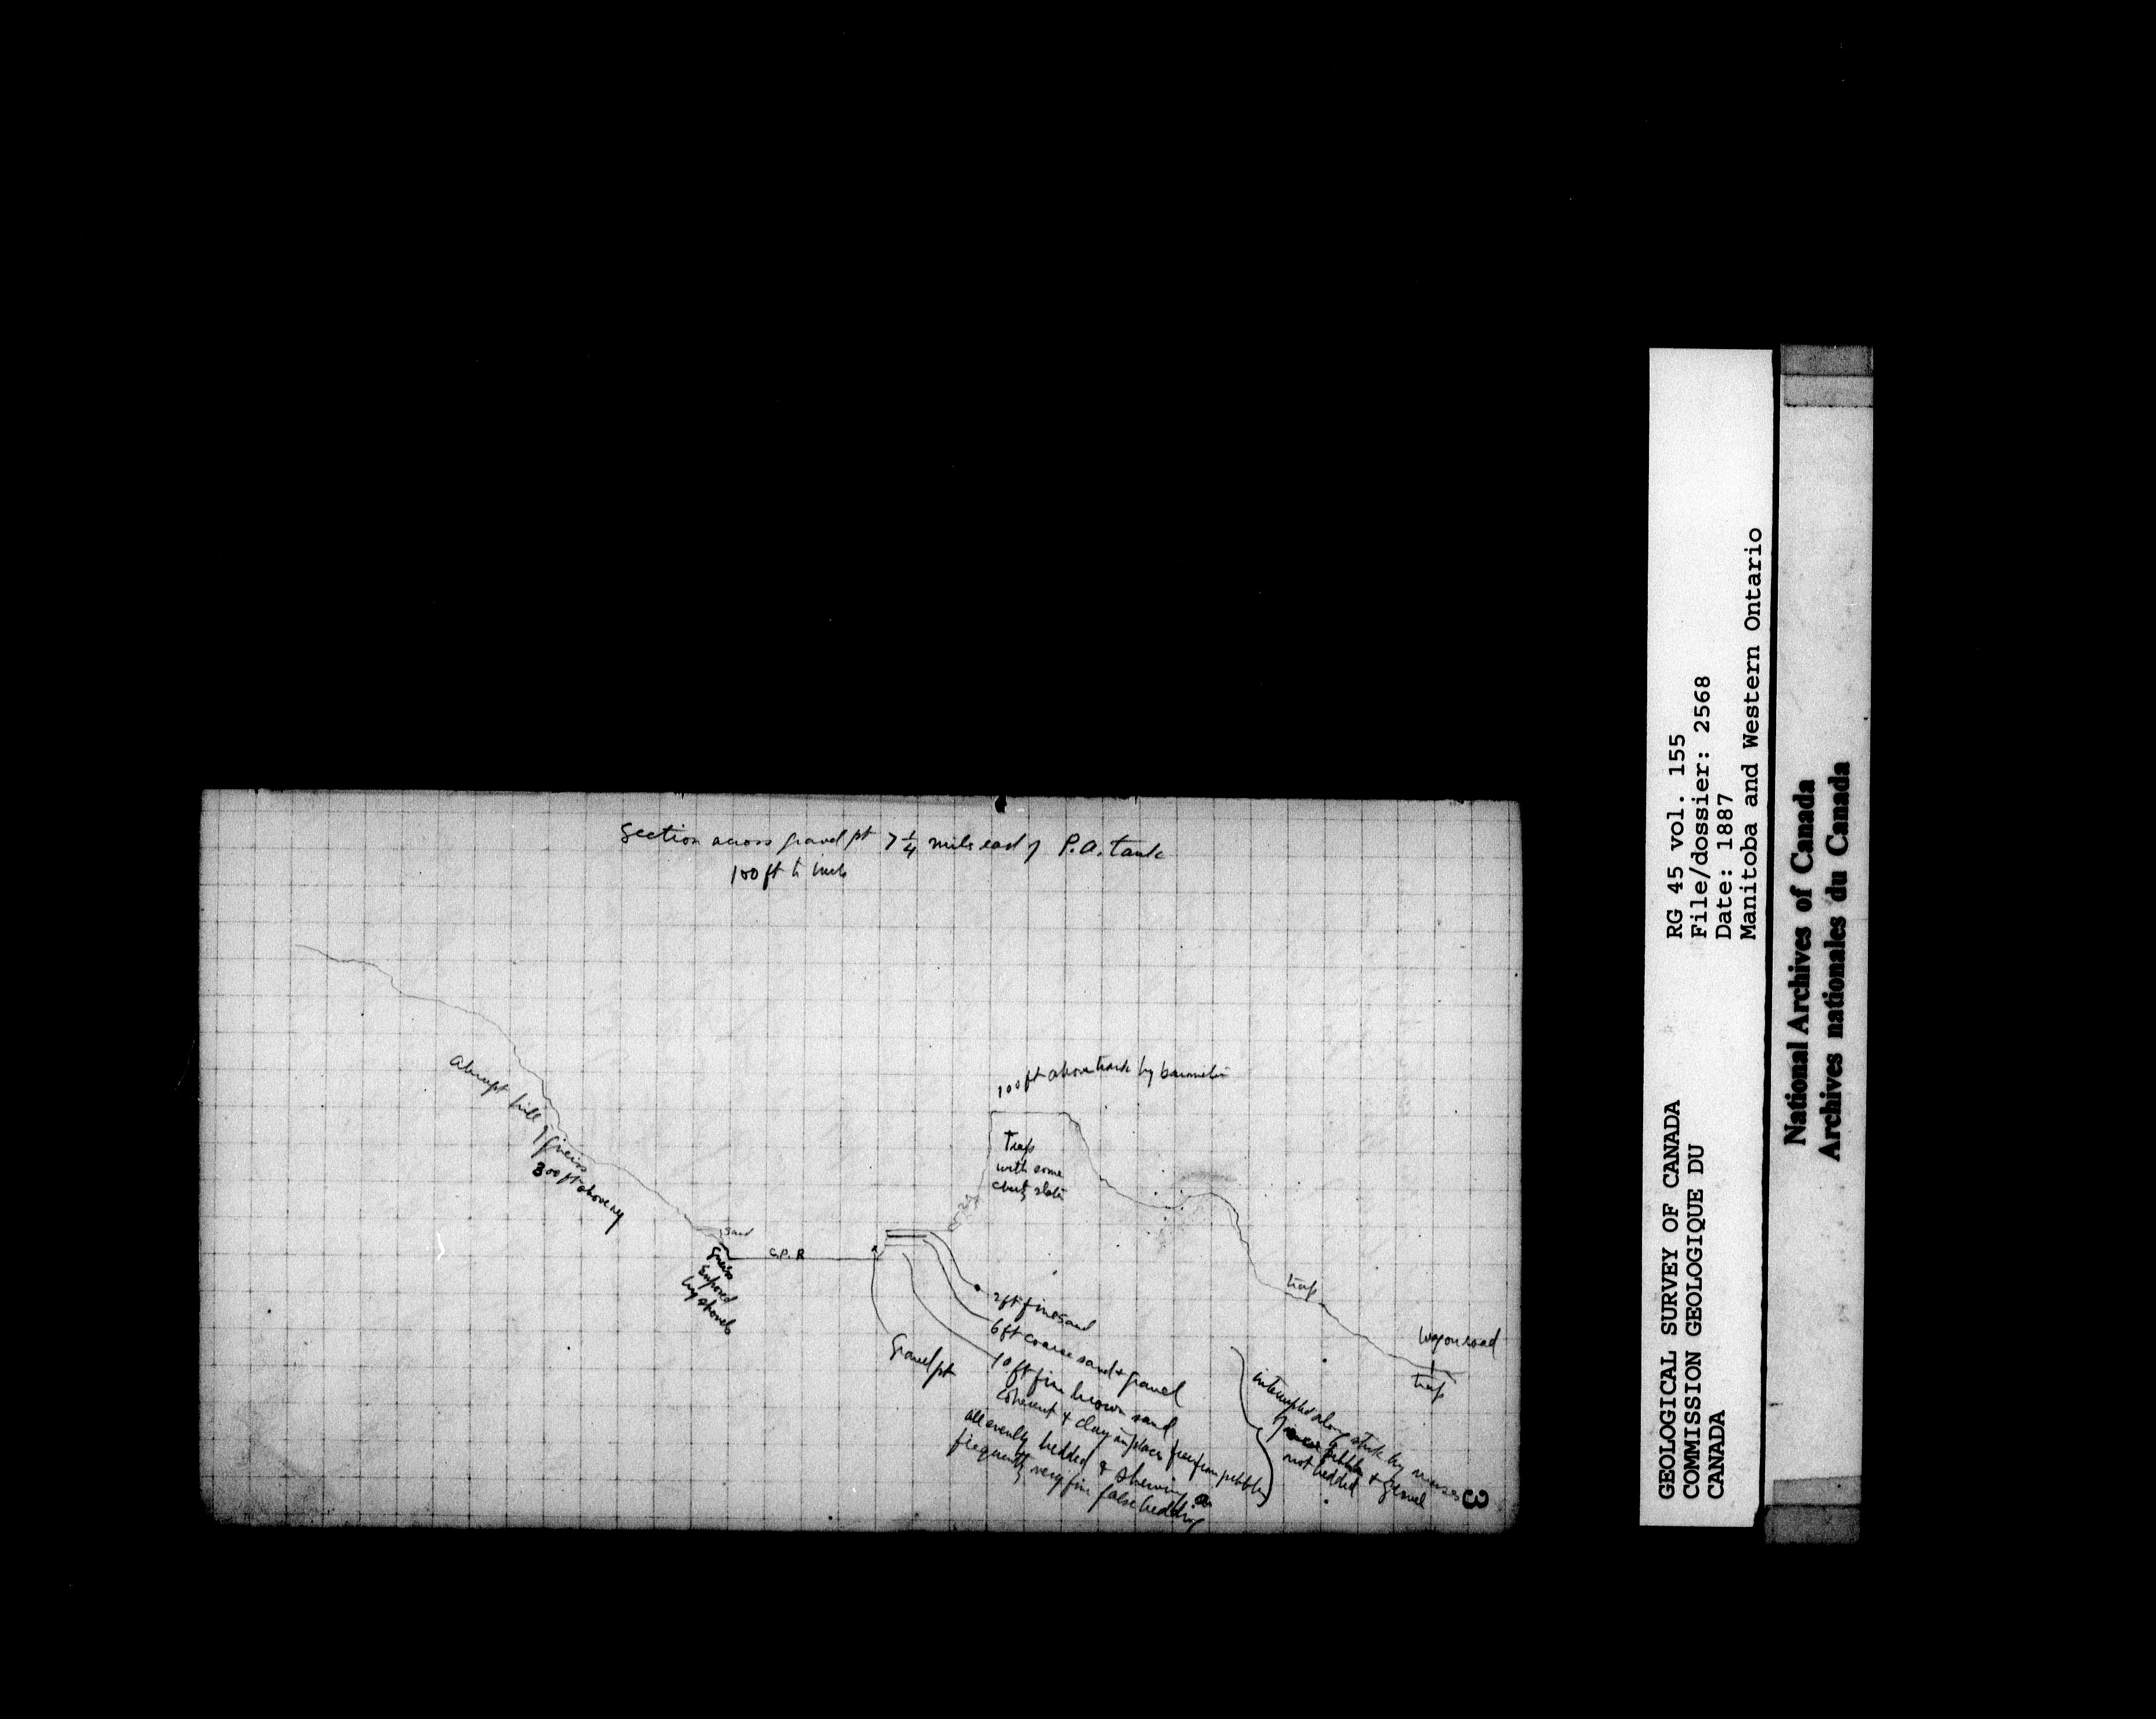 Section across gravel pt 7 1/4 mile east of P.A. tank
100 ft to inch
abrupt hill of gneiss
300 ft above ry
sand
Gneiss
Exposed
by shovels
C.P.R
100 ft above track by barometer
Trap
with some
cherty slate
trap
Wagon road
trap
Gravel pt
2ft fine sand
6 ft coarse sand + gravel
10 ft fine brown sand
coherent & clay in places free from pebbles
all evenly bedded & shewing
frequently very fine false bedding
interrupted along strike by masses
of pebbles & gravel
not bedded
3
GEOLOGICAL SURVEY OF CANADA
COMMISSION GEOLOGIQUE DU
CANADA
RG 45 vol. 155
File/dossier: 2568
Date: 1887
Manitoba and Western Ontario
National Archives of Canada
Archives nationales du Canada